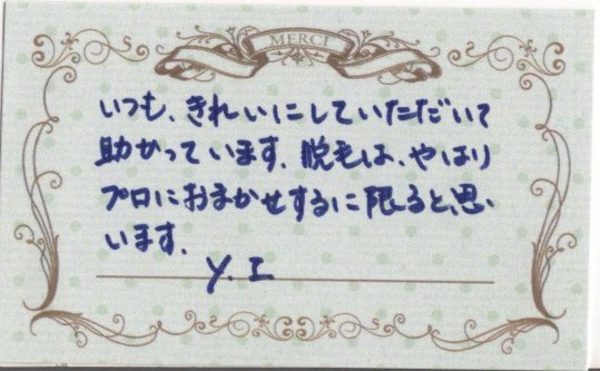 MERCI
いつも、きれいにしていただいて
助かっています。脱毛は、やはり
プロにおまかせするに限ると思い
います。
Y.I